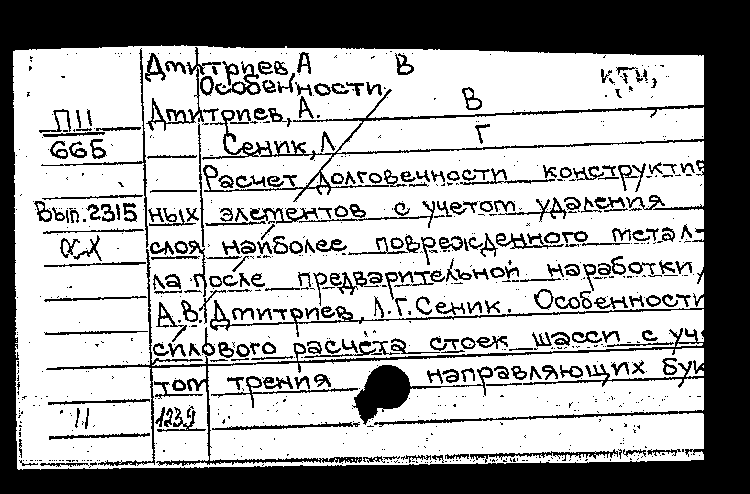 Дмитриев, А В
Особенности
Дмитриев, А. В
П11
665
Сеник, Л Г
Расчет долговечности конструктив
Вып.2315
ных элементов с учетом удаления
слоя наиболее поврежденного метал-
ла после предварительной наработки/
А.В. Дмитриев, Л.Г. Сеник. Особенности
силового расчёта стоек шасси с уч
том трения направляющих бук
11
1239